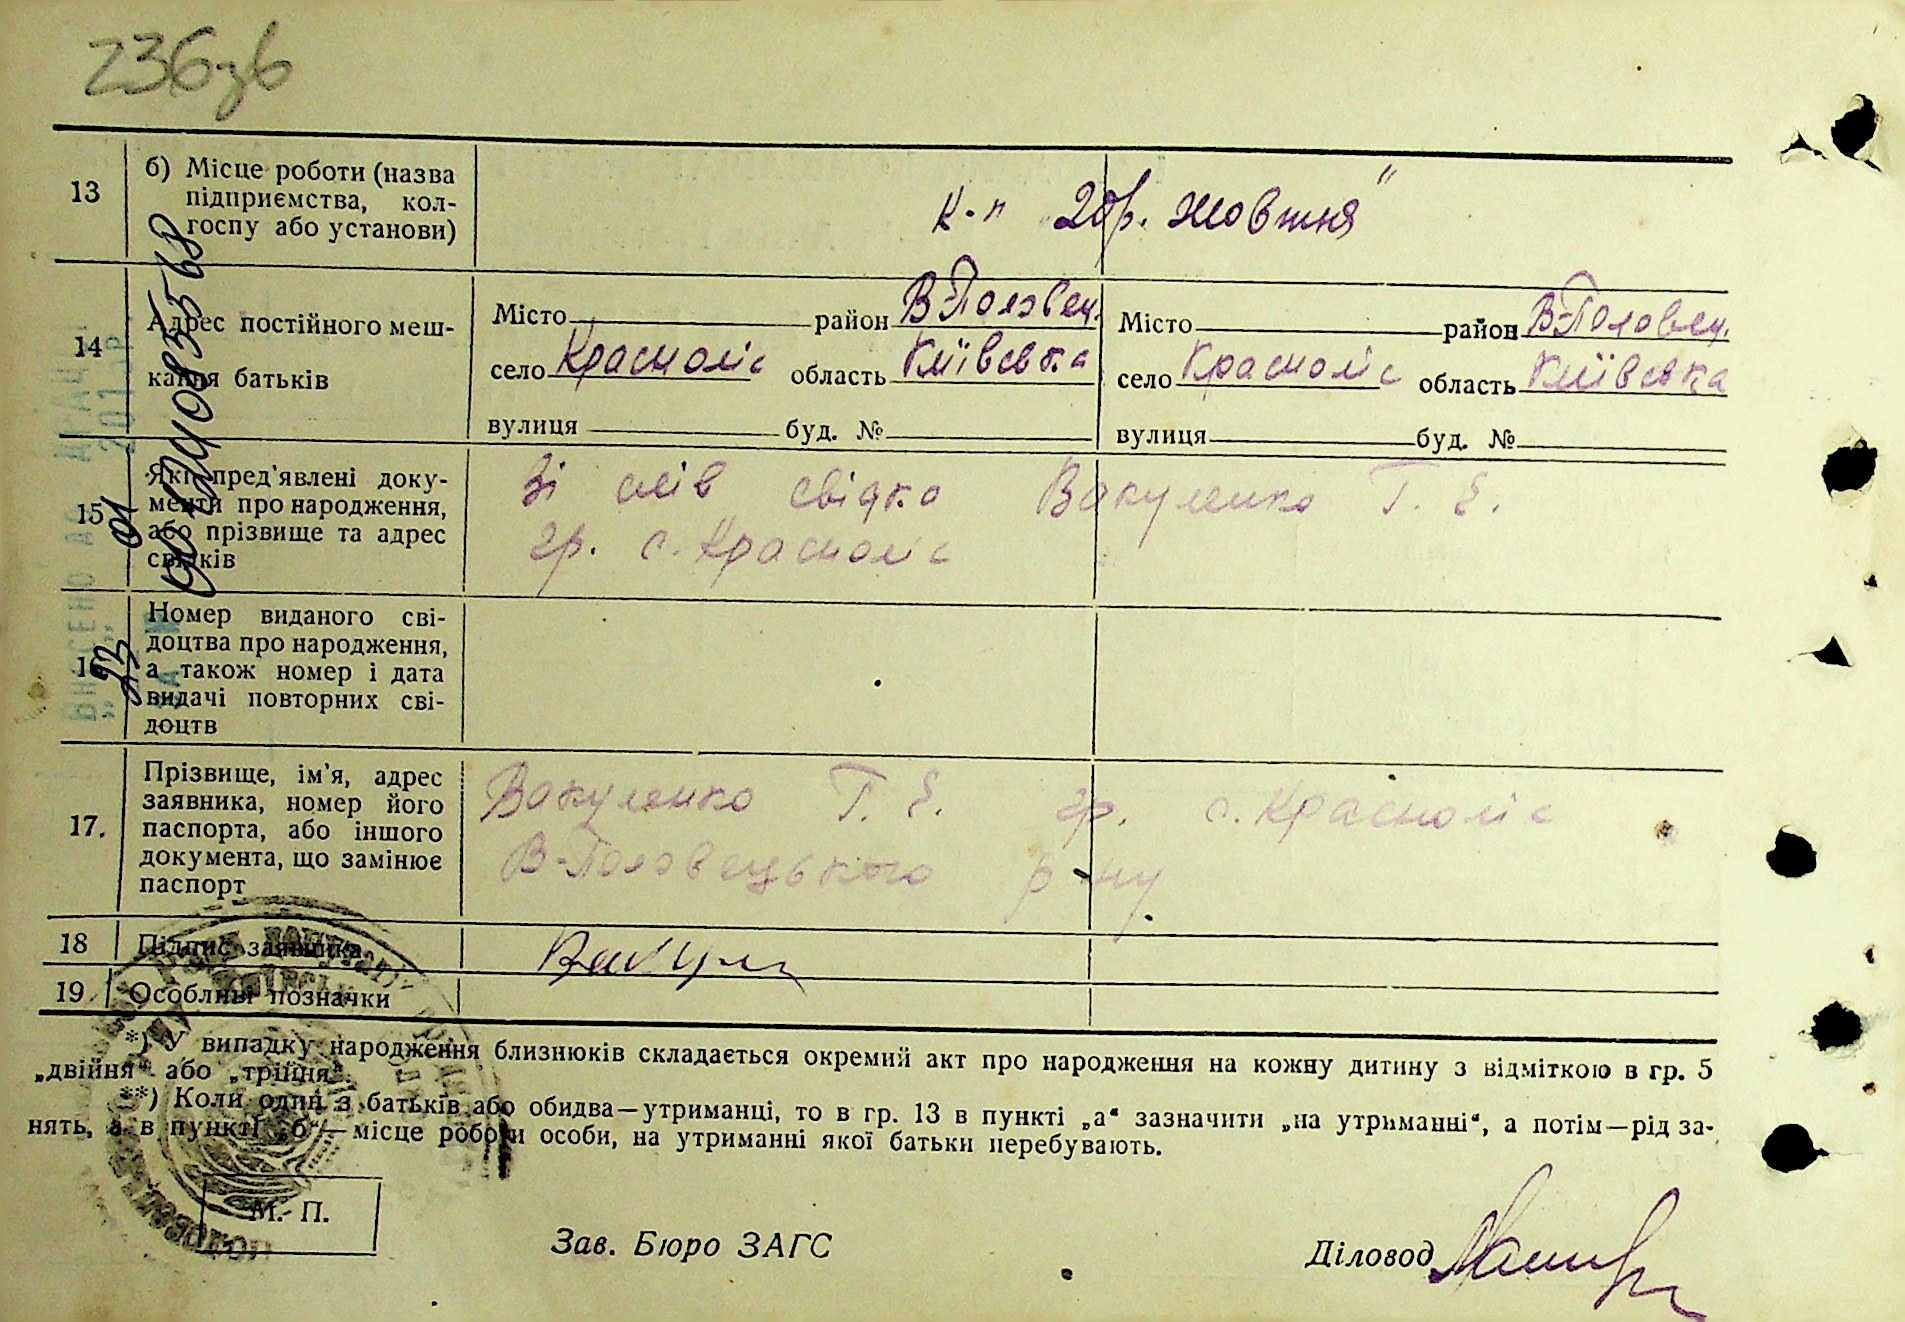 236зв
13
б) Місце роботи (назва
підприємства, кол-
госпу або установи)
к-п "20р. жовтня"
14
Адрес постійного меш-
кання батьків
Місто район В-Половец.
село Красноліс область Київська
вулиця буд. №
Місто район В-Половец.
село Красноліс область Київська
вулиця буд. №
15
Які пред'явлені доку-
менти про народження,
або прізвище та адрес
свідків
Зі слів свідка Вакуленко Т. Є.
гр. с. Красноліс
Номер виданого сві-
доцтва про народження,
а також номер і дата
видачі повторних сві-
доцтв
17.
Прізвище, ім'я, адрес
заявника, номер його
паспорта, або іншого
документа, що замінює
паспорт
Вакуленко Т. Є. гр. с. Красноліс
В-Половецького р-ну
18
Підпис заявника
Вакул
19
Особливі позначки
*) У випадку народження близнюків складається окремий акт про народження на кожну дитину з відміткою в гр. 5
„двійня" або „трійня".
**) Коли один з батьків або обидва—утриманці, то в гр. 13 в пункті „а" зазначити „на утриманні", а потім—рід за-
нять, а в пункті „б"—місце роботи особи, на утриманні якої батьки перебувають.
М. П.
Зав. Бюро ЗАГС
Діловод